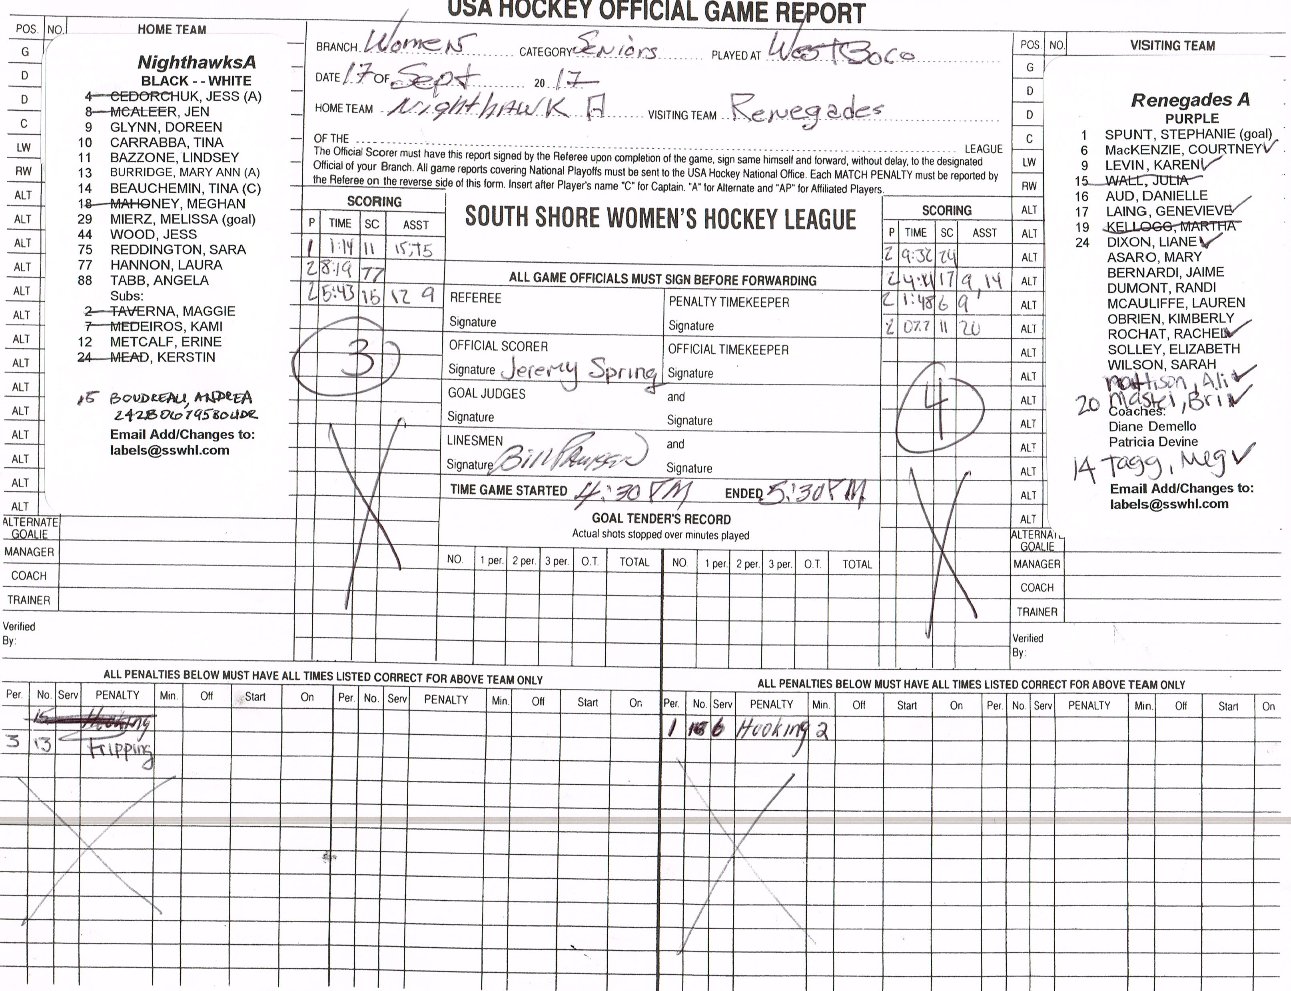 USA HOCKEY OFFICIAL GAME REPORT
POS. NO. HOME TEAM
G
D
D
C
LW
RW
ALT
ALT
ALT
ALT
ALT
ALT
ALT
ALT
ALT
ALT
ALT
ALT
ALT
ALT
ALTERNATE GOALIE
MANAGER
COACH
TRAINER
Verified
By:
NighthawksA
BLACK - - WHITE
4 CEDORCHUK, JESS (A)
8 MCALEER, JEN
9 GLYNN, DOREEN
10 CARRABBA, TINA
11 BAZZONE, LINDSEY
13 BURRIDGE, MARY ANN (A)
14 BEAUCHEMIN, TINA (C)
18 MAHONEY, MEGHAN
29 MIERZ, MELISSA (goal)
44 WOOD, JESS
75 REDDINGTON, SARA
77 HANNON, LAURA
88 TABB, ANGELA
Subs:
2 TAVERNA, MAGGIE
7 MEDEIROS, KAMI
12 METCALF, ERINE
24 MEAD, KERSTIN
15 BOUDREAU, ANDREA
Email Add/Changes to:
labels@sswhl.com
BRANCH Women CATEGORY Seniors PLAYED AT West Boco
DATE 17 OF Sept 20 17
HOME TEAM Nighthawk A VISITING TEAM Renegades
OF THE LEAGUE
The Official Scorer must have this report signed by the Referee upon completion of the game, sign same himself and forward, without delay, to the designated
Official of your Branch. All game reports covering National Playoffs must be sent to the USA Hockey National Office. Each MATCH PENALTY must be reported by
the Referee on the reverse side of this form. Insert after Player's name "C" for Captain. "A" for Alternate and "AP" for Affiliated Players.
SCORING
P TIME SC ASST
1 1:14 11 15,75
2 8:19 77
2 5:43 15 12 9
3
SOUTH SHORE WOMEN'S HOCKEY LEAGUE
ALL GAME OFFICIALS MUST SIGN BEFORE FORWARDING
REFEREE PENALTY TIMEKEEPER
Signature Signature
OFFICIAL SCORER OFFICIAL TIMEKEEPER
Signature Jeremy Spring Signature
GOAL JUDGES and
Signature Signature
LINESMEN and
Signature Bill Signature
TIME GAME STARTED 4:30 PM ENDED 5:30 PM
GOAL TENDER'S RECORD
Actual shots stopped over minutes played
NO. 1 per. 2 per. 3 per. O.T. TOTAL NO. 1 per. 2 per. 3 per. O.T. TOTAL
SCORING
P TIME SC ASST
2 9:32 24
2 17 9,14
2 1:48 6 9
2 11 20
4
POS NO. VISITING TEAM
G
D
D
C
LW
RW
ALT
ALT
ALT
ALT
ALT
ALT
ALT
ALT
ALT
ALT
ALT
ALT
ALT
ALT
GOALIE
MANAGER
COACH
TRAINER
Verified
By:
Renegades A
PURPLE
1 SPUNT, STEPHANIE (goal)
6 MacKENZIE, COURTNEY
9 LEVIN, KAREN
15 WALL, JULIA
16 AUD, DANIELLE
17 LAING, GENEVIEVE
19 KELLOGG, MARTHA
24 DIXON, LIANE
ASARO, MARY
BERNARDI, JAIME
DUMONT, RANDI
MCAULIFFE, LAUREN
OBRIEN, KIMBERLY
ROCHAT, RACHEL
SOLLEY, ELIZABETH
WILSON, SARAH
Mattison, Ali
20 Bri
Coaches:
Diane Demello
Patricia Devine
14 Tagg, Meg
Email Add/Changes to:
labels@sswhl.com
ALL PENALTIES BELOW MUST HAVE ALL TIMES LISTED CORRECT FOR ABOVE TEAM ONLY
Per. No. Serv PENALTY Min. Off Start On Per. No. Serv PENALTY Min. Off Start On
15 Hooking
3 13 Tripping
ALL PENALTIES BELOW MUST HAVE ALL TIMES LISTED CORRECT FOR ABOVE TEAM ONLY
Per. No. Serv PENALTY Min. Off Start On Per. No. Serv PENALTY Min. Off Start On
1 6 Hooking 2